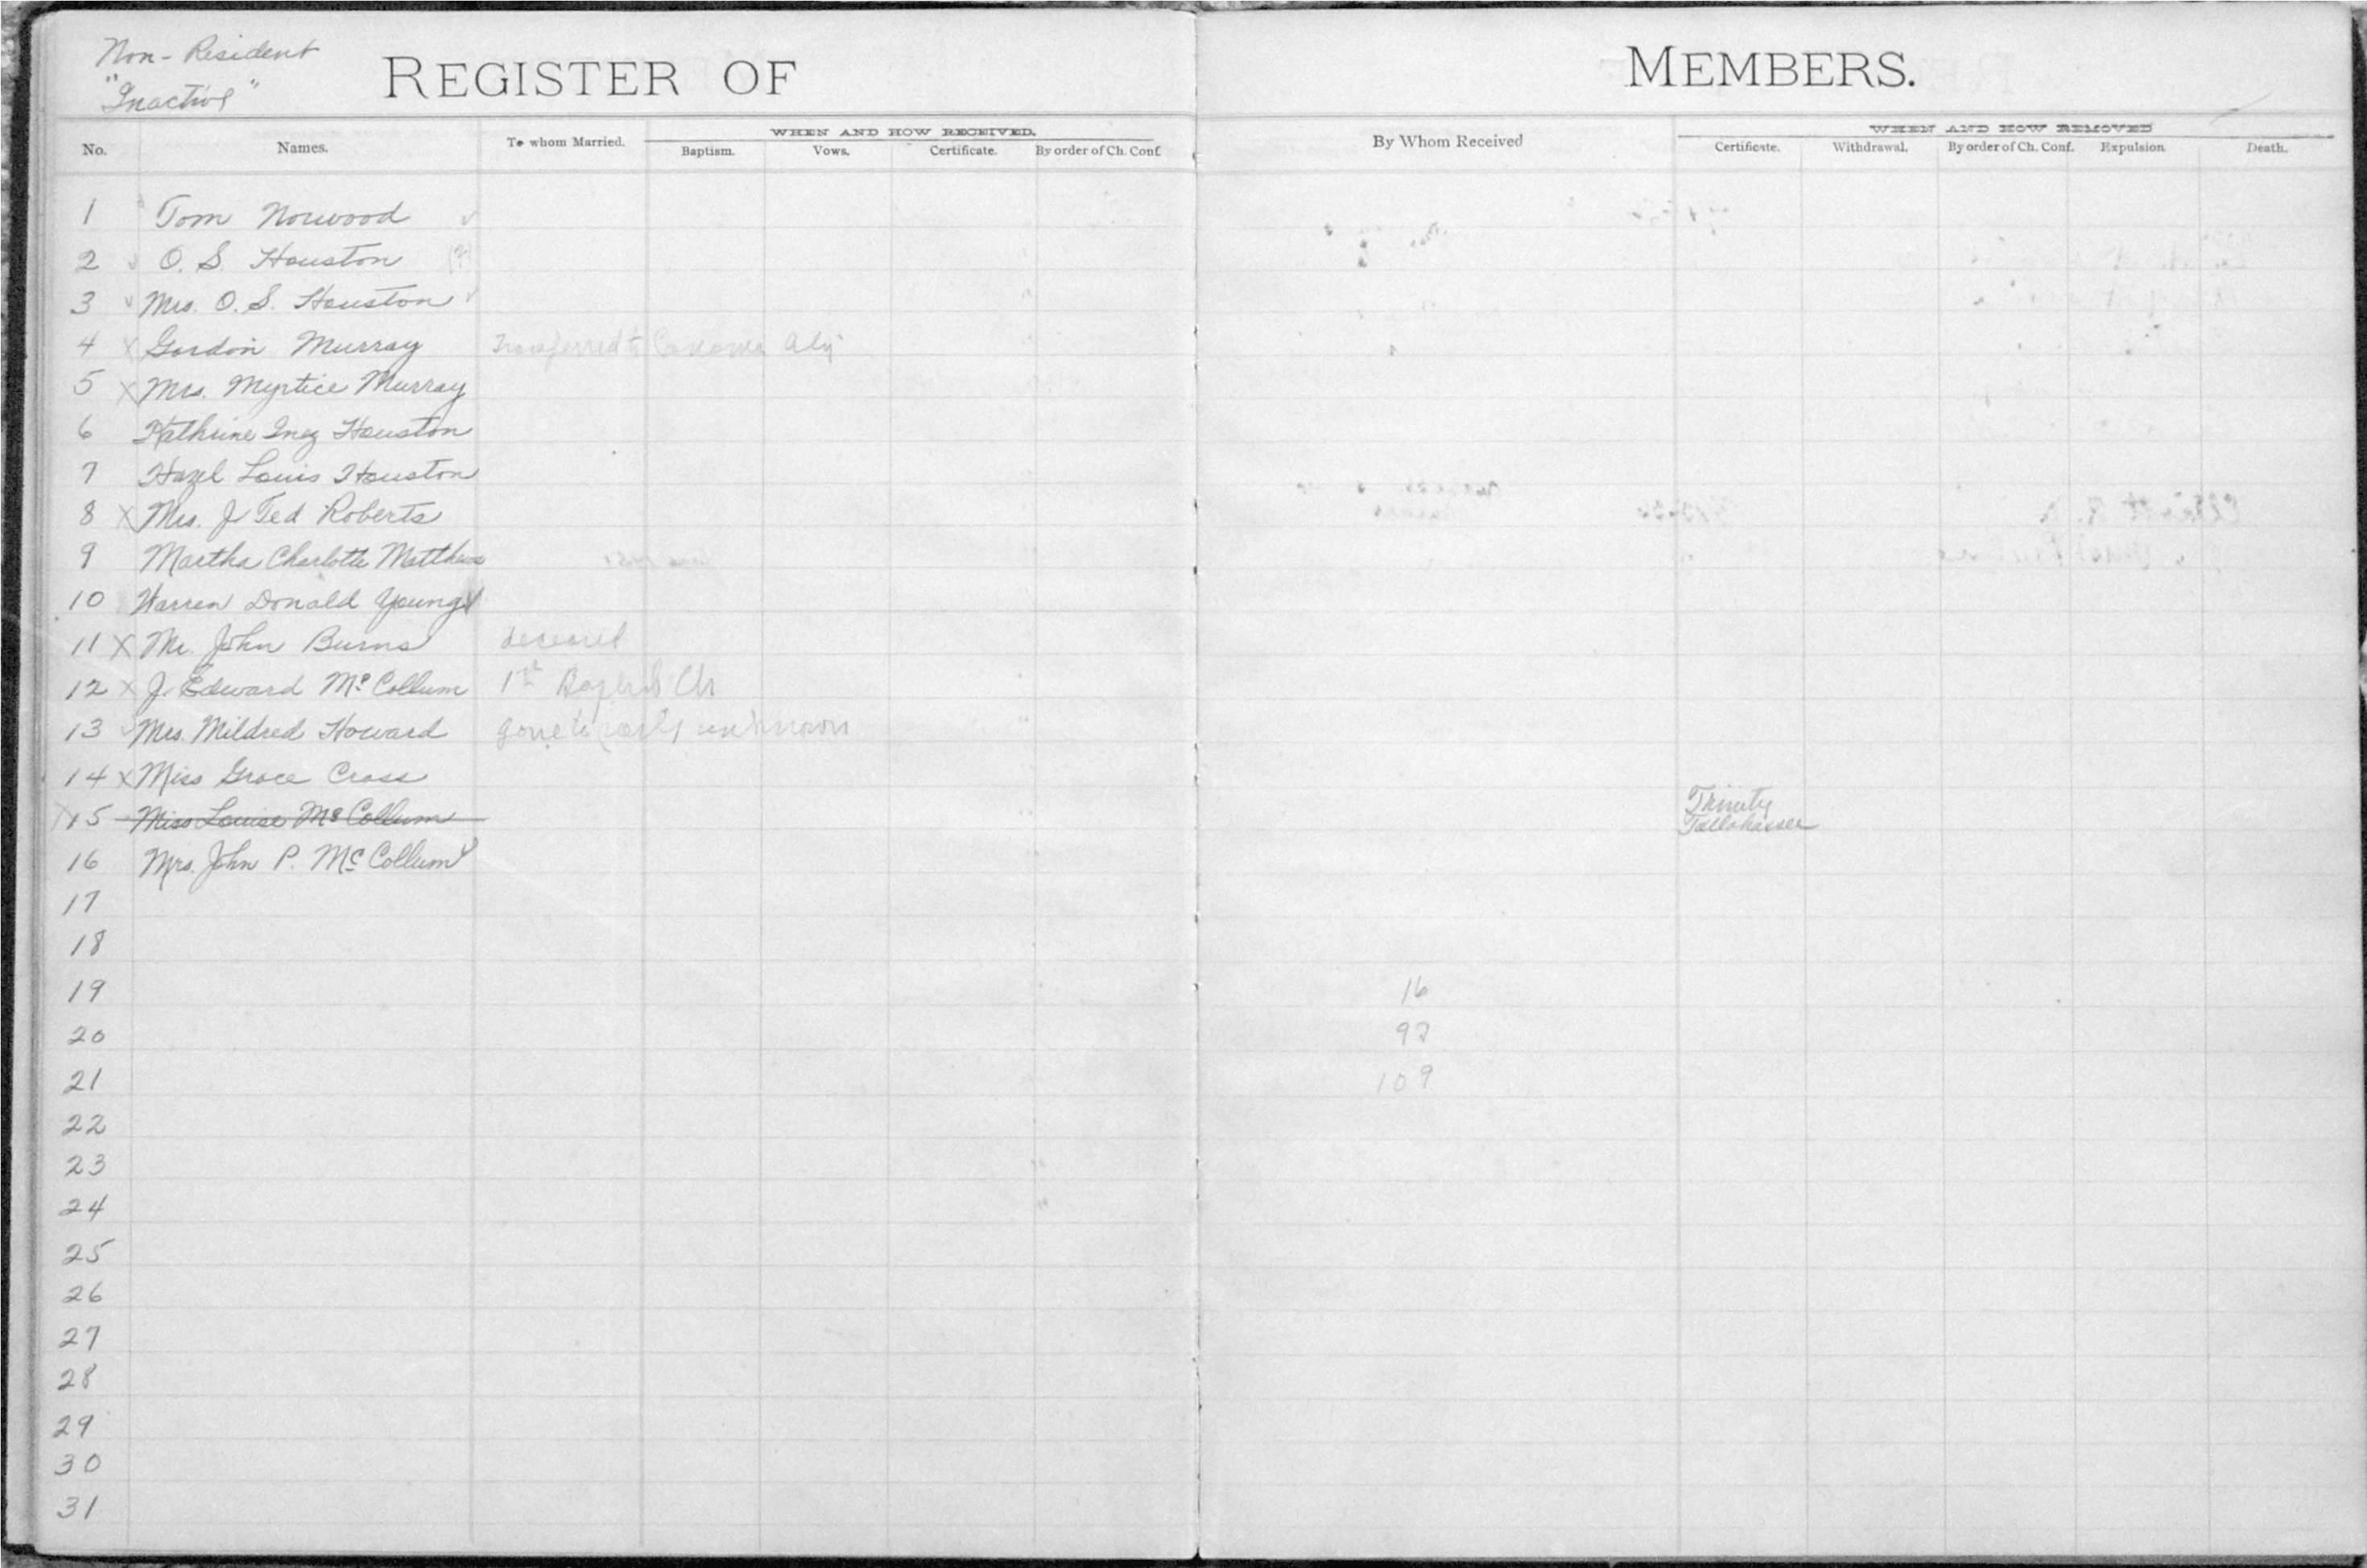 Non-Resident
"Inactive"
REGISTER OF MEMBERS.
No. Names. To whom Married. WHEN AND HOW RECEIVED. Baptism. Vows. Certificate. By order of Ch. Conf. By Whom Received WHEN AND HOW REMOVED Certificate. Withdrawal. By order of Ch. Conf. Expulsion Death.
1 Tom Norwood ✓
2 ✓ O. S. Houston (?)
3 ✓ Mrs. O. S. Houston ✓
4 X Gordon Murray Transferred to
5 X Mrs. Myrtice Murray
6 Kathrine Inez Houston
7 Hazel Louis Houston
8 X Mrs. J Ted Roberts
9 Martha Charlotte Matthews
10 Warren Donald Young
11 X Mr. John Burns deceased
12 X J. Edward McCollum 1st Baptist Ch
13 Mrs. Mildred Howard gone to unknown
14 X Miss Grace Cross
X 15 Miss Louise McCollum Trinity
Tallahassee
16 Mrs. John P. McCollum
17
18
19 16
20 93
21 109
22
23
24
25
26
27
28
29
30
31